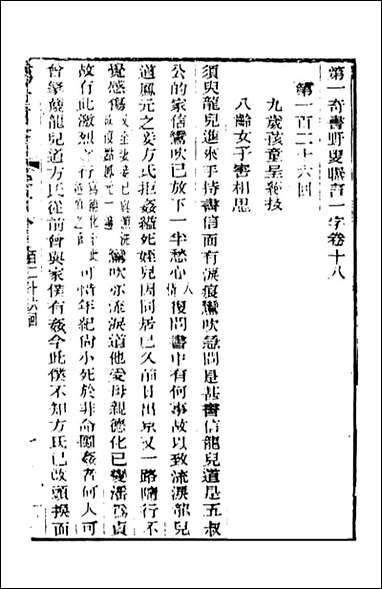 第一奇書野叟曝言一字卷十八
第一百二十六回
九歲孩童呈絕技
八齡女子害相思
須臾龍兒進來手持書信面有淚痕鸞吹急問是甚書信龍兒道是五叔
公的家信鸞吹已放下一半愁心復問書中有何事故以致流淚龍兒
道鳳元之妾方氏拒姦縊死姪兒因同居已久前日出京又一路隨行不
覺感傷鸞吹亦流淚道他受母親德化已變潘為貞
故有此激烈之行可惜年紀尚小死於非命關姦者何人可
曾拏處龍兒道方氏從前曾與家僕有姦今此僕不知方氏已改頭換面